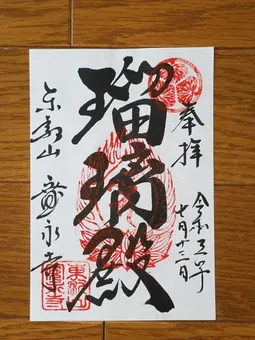 奉拝
令和三年
七月十三日
瑠璃殿
東叡山 寛永寺
東叡山
寛永寺